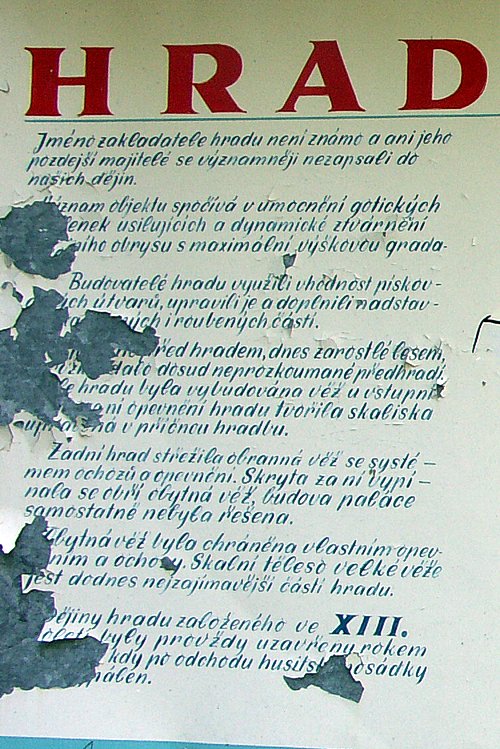 HRAD
Jméno zakladatele hradu není známo a ani jeho
pozdejší majitelé se významněji nezapsali do
našich dějin.
význam objektu spočívá v umocnění gotických
usilujících a dynamické ztvárnění
obrysu s maximální výškovou grada-
Budovatelé hradu využili vhodnost pískov-
útvarů, upravili je a doplnili nadstav-
i roubených částí.
před hradem, dnes zarostlé lesem,
dosud neprozkoumané předhradí
hradu byla vybudována věž u vstupní
opevnění hradu tvořila skaliska
v příčnou hradbu.
Zadní hrad střežila obranná věž se systé-
mem ochozů a opevnění. Skryta za ní vypí-
nala se obří obytná věž, budova paláce
samostatně nebyla řešena.
Obytná věž byla chráněna vlastním opev-
ním a ochozy. Skalní těleso velké věže
jest dodnes nejzajímavější částí hradu.
dějiny hradu založeného ve XIII.
byly provždy uzavřeny rokem
kdy po odchodu husitské posádky